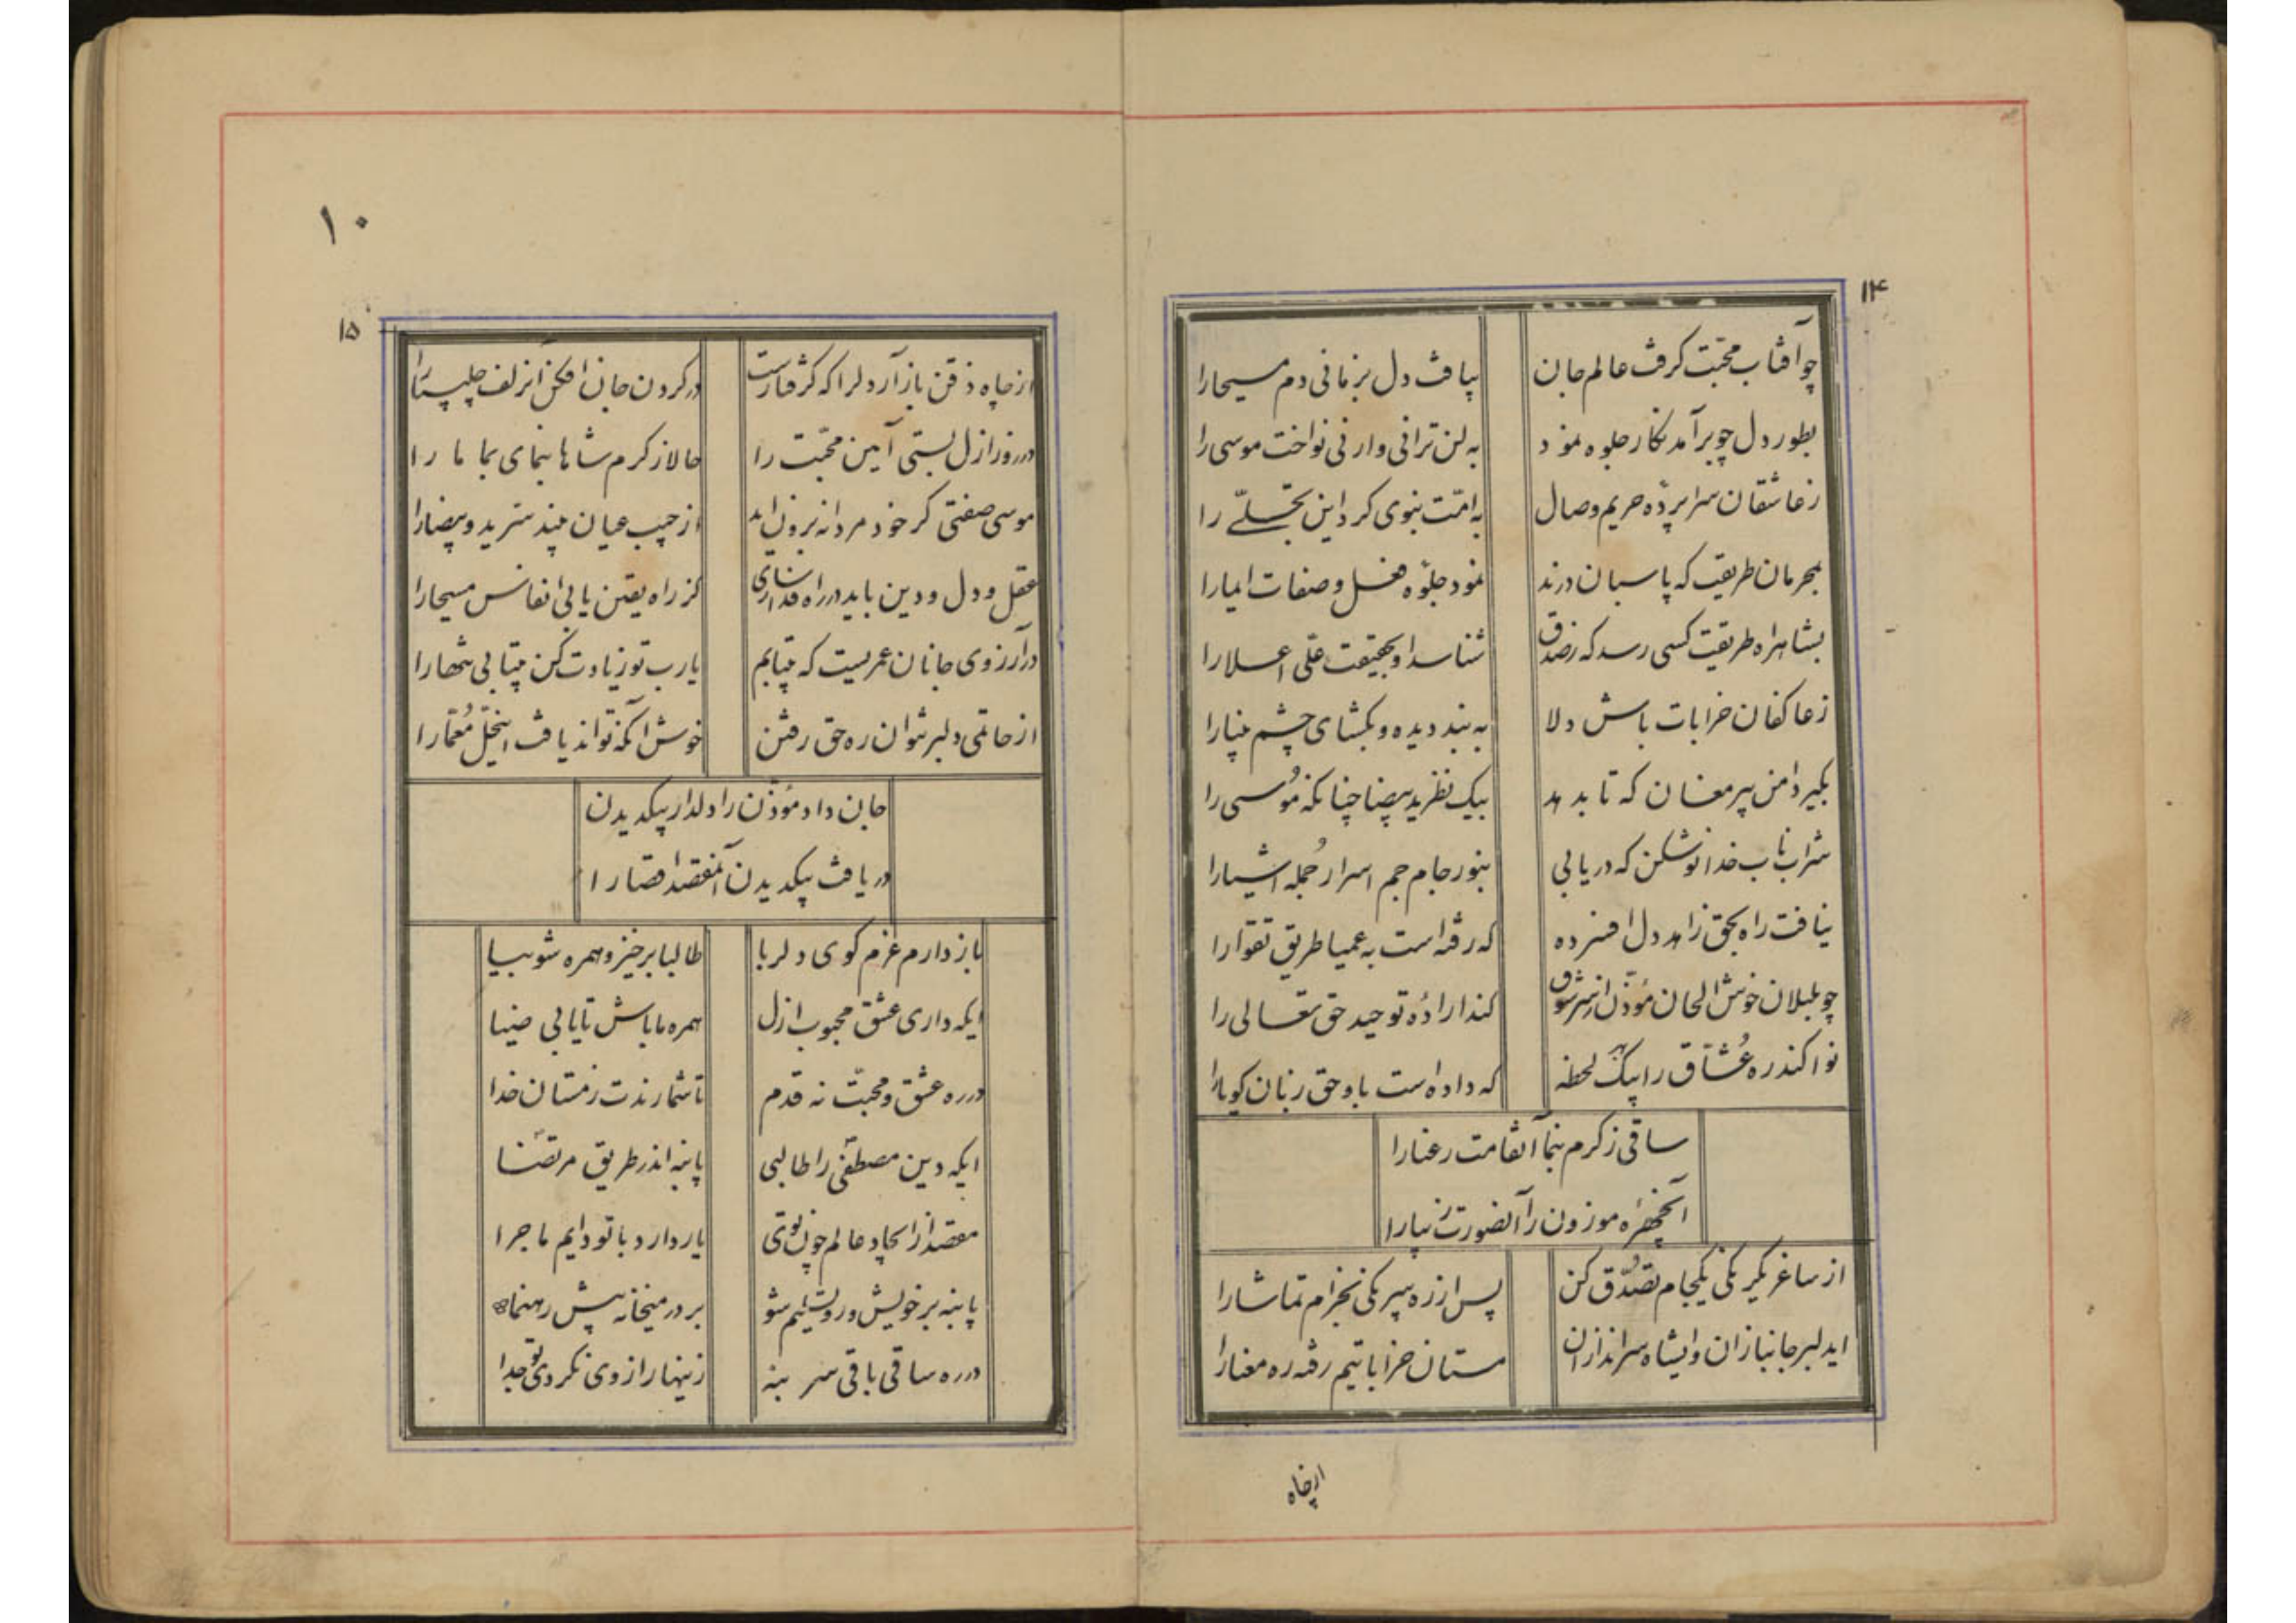 ۱۴
چو آفتاب محبّت گرفت عالم جان
بیافت دل بزمانی دم مسیحا را
بطور دل چو برآمد نگار جلوه نمود
به لن ترانی و ارنی نواخت موسی را
ز عاشقان سراپرده حریم وصال
به امّت نبوی کرد این تجلّے را
بمحرمان طریقت که پاسبان درند
نمود جلوه فعل و صفات
بشاهراه طریقت کسی رسد که ز صدق
شناسد او بحقیقت علّی اعلا را
ز عاکفان خرابات باش دلا
به بند دیده و بگشای چشم بینا را
بگیر دامن پیر مغان که تا بدهد
بیک نظر ید بیضا چنانکه موسی را
شراب ناب خدا نوش کن که دریابی
بنور جام جم اسرار جمله اشیا را
نیافت راه بحق زاهد دل افسرده
که رفته است به عمیا طریق تقوا را
چو بلبلان خوش الحان مؤذّن از سر شوق
کند ادا ره توحید حق تعالی را
نوا کند ره عُشّاق را بیک لحظه
که داده است باو حق زبان گویا را
ساقی ز کرم بنما آنقامت رعنا را
آنچهرهٔ موزون را آنصورت زیبا را
از ساغر یکرنگی یکجام تصدّق کن
پس از ره بیرنگی بخرام تماشا را
ایدلبر جانبازان وایشاه سراندازان
مستان خراباتیم رفته ره مغنا را
ازچاه
۱۰
۱۵
از چاه ذقن باز آر دلرا که گرفتارست
در گردن جان افکن آنزلف چلیپا را
در روز ازل بستی آیین محبّت را
حالا ز کرم شاها بنمای بما ما را
موسی صفتی گر خود مردانه برون آید
از جیب عیان بیند سرّ ید و بیضا را
عقل و دل و دین باید در راه فدا سازی
کز راه یقین یابی انفاس مسیحا را
در آرزوی جانان عمریست که بیتابم
یارب تو زیادت کن بیتابی شمها را
از خاتمی دلبر نتوان ره حق رفتن
خوش آنکه تواند یافت اینحلّ مُعمّا را
جان داد مؤذّن را دلدار بیکدیدن
دریافت بیکدیدن آنمقصد اقصا را
باز دارم عزم کوی دلربا
طالبا برخیز و همره شو بیا
ایکه داری عشق محبوب ازل
همره ما باش تا یابی ضیا
در ره عشق و محبّت نه قدم
تا شمارندت ز مستان خدا
ایکه دین مصطفی را طالبی
پا بنه اندر طریق مرتضا
مقصد از ایجاد عالم چون توئی
یار دارد با تو دایم ماجرا
پا بنه بر خویش و رو تسلیم شو
بر در میخانه پیش رهنما
در ره ساقی باقی سر بنه
زینهار از وی نگردی تو جدا